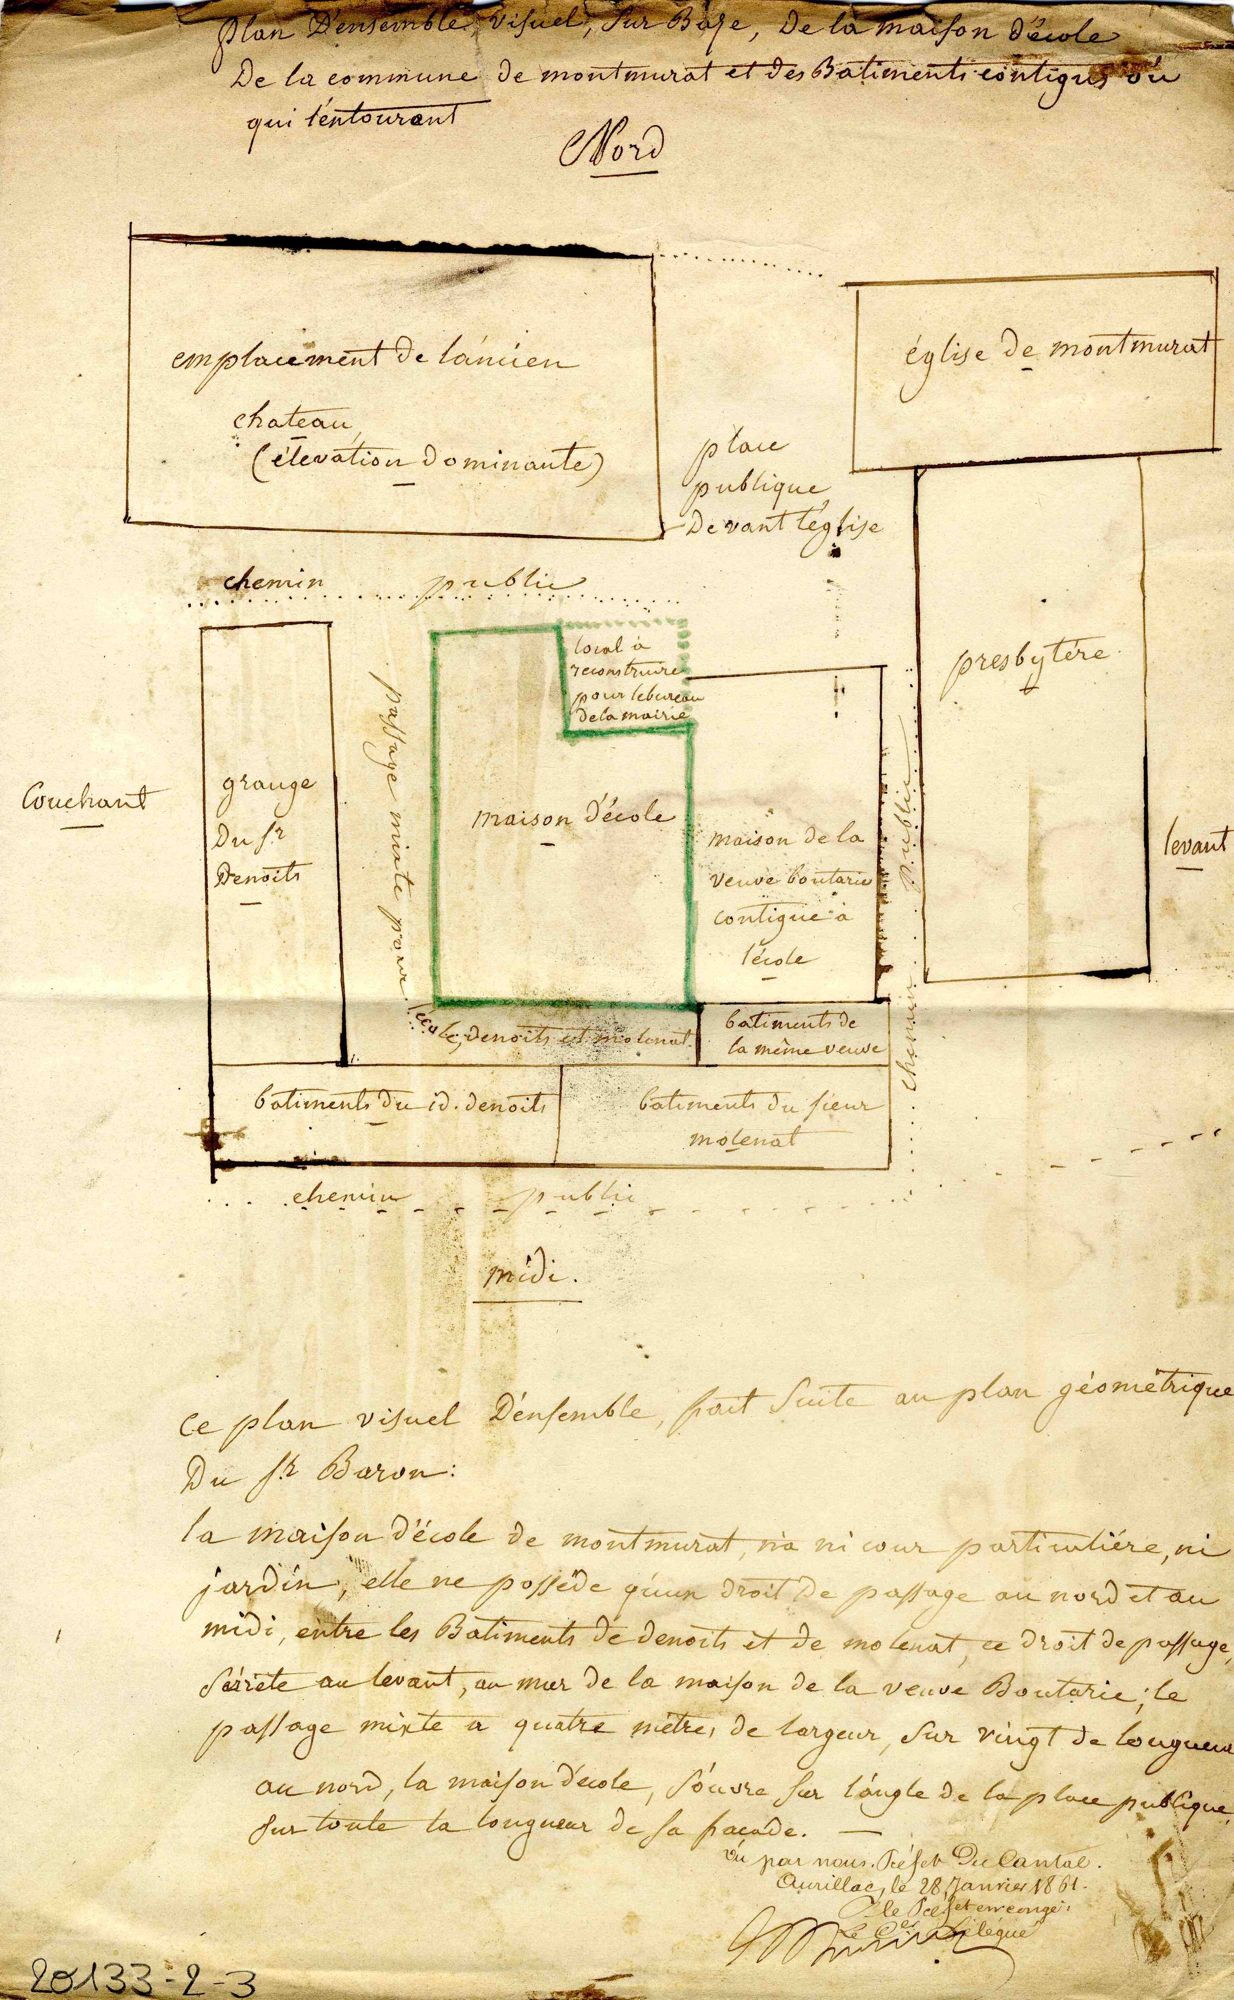 plan D'ensemble visuel, sur Base, De la maison d'école
De la commune de montmurat et des Batiments contigus ou
qui l'entourent
Nord
emplacement de l'ancien
chateau,
(élévation dominante)
église de montmurat
place
publique
Devant l'église
chemin public
local à
reconstruire
pour le bureau
de la mairie
presbytére
passage mixte pour l'école, denoits et molenat
Couchant
grange
Du sr
Denoits
maison d'école
maison de la
veuve boutarie
contigue à
l'école
chemin public
levant
batiments de
la même veuve
batiments du id. denoits
batiments du sieur
molenat
chemin public
midi.
Ce plan visuel D'ensemble, fait Suite au plan géométrique
Du sr Baron:
la maison d'école de montmurat, n'a ni cour particuliére, ni
jardin, elle ne posséde qu'un droit De passage au nord et au
midi, entre les Batiments de denoits et de molenat, ce droit de passage,
s'arrete au levant, au mur de la maison de la veuve Boutarie; le
passage mixte a quatre métres de largeur, sur vingt de longueur
au nord, la maison d'école, s'ouvre sur l'angle de la place publique,
sur toute la longueur de sa façade. —
Vu par nous. Préfet Du Cantal.
Aurillac, le 28 Janvier 1861.
P. le Préfet en congé,
Le Cer Délégué
20133-2-3